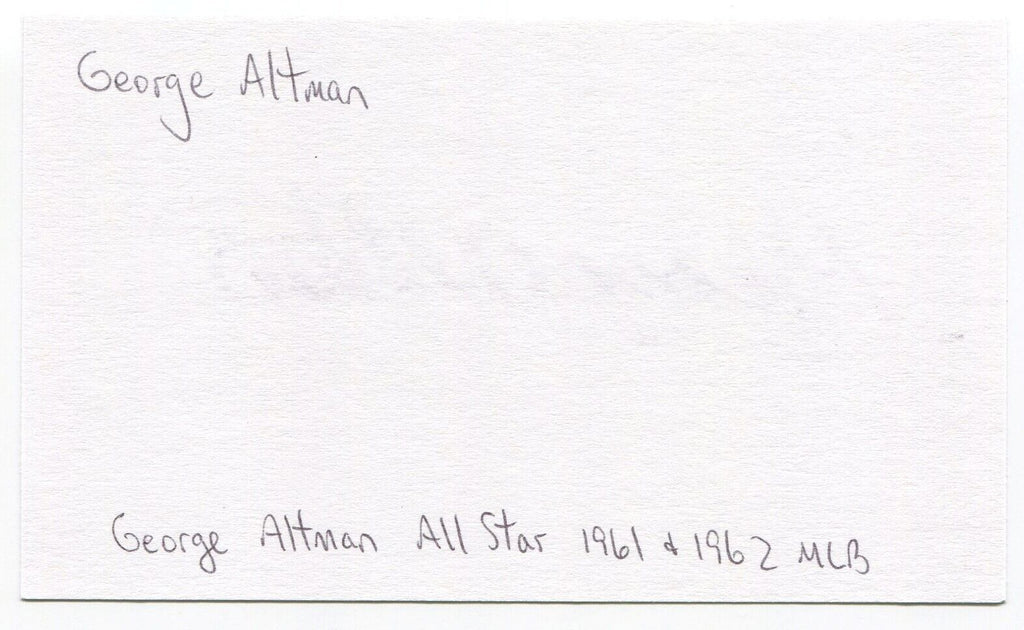 George Altman
George Altman All Star 1961 & 1962 MLB